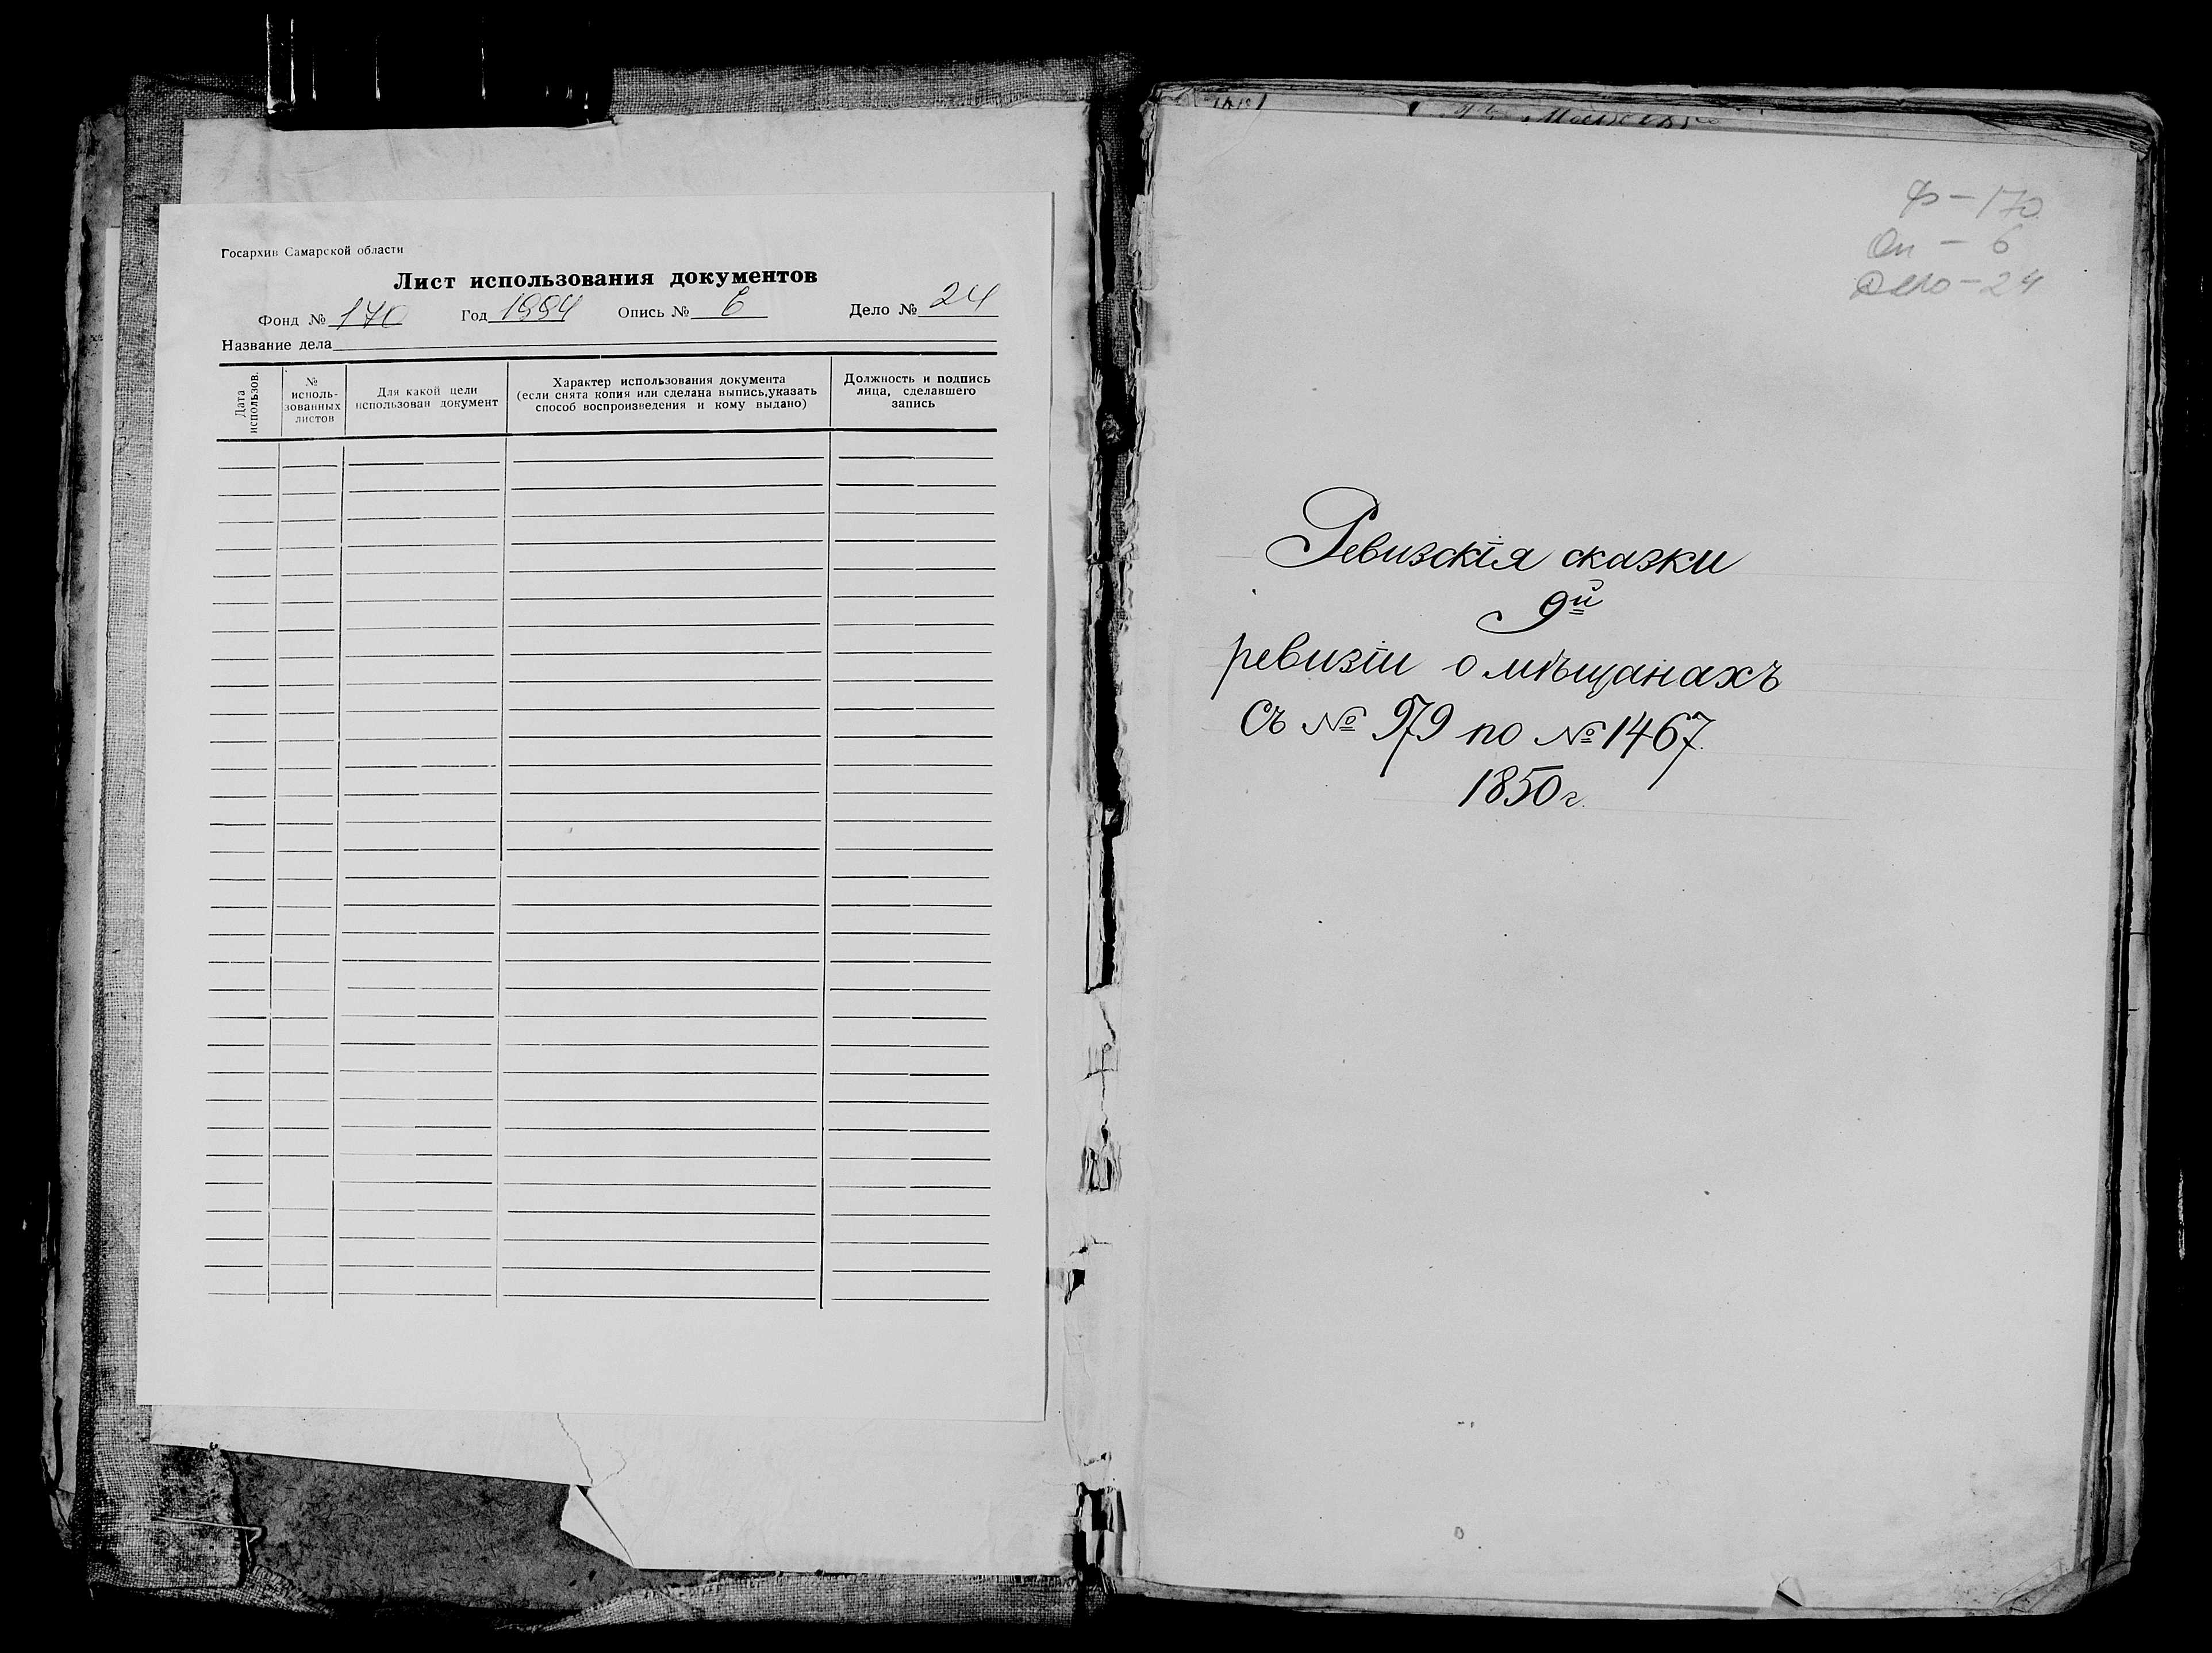 Госархив Самарской области
Лист использования документов
Фонд № 170 Год 1994 Опись № 6 Дело № 24
Название дела
Дата использов.
№ исполь-
зованных
листов
Для какой цели
использован документ
Характер использования документа
(если снята копия или сделана выпись,указать
способ воспроизведения и кому выдано)
Должность и подпись
лица, сделавшего
запись
Ф-170
Оп - 6
Дело-24
Ревизскія сказки
9й
ревизіи о мѣщанахъ
Съ № 979 по № 1467.
1850 г.